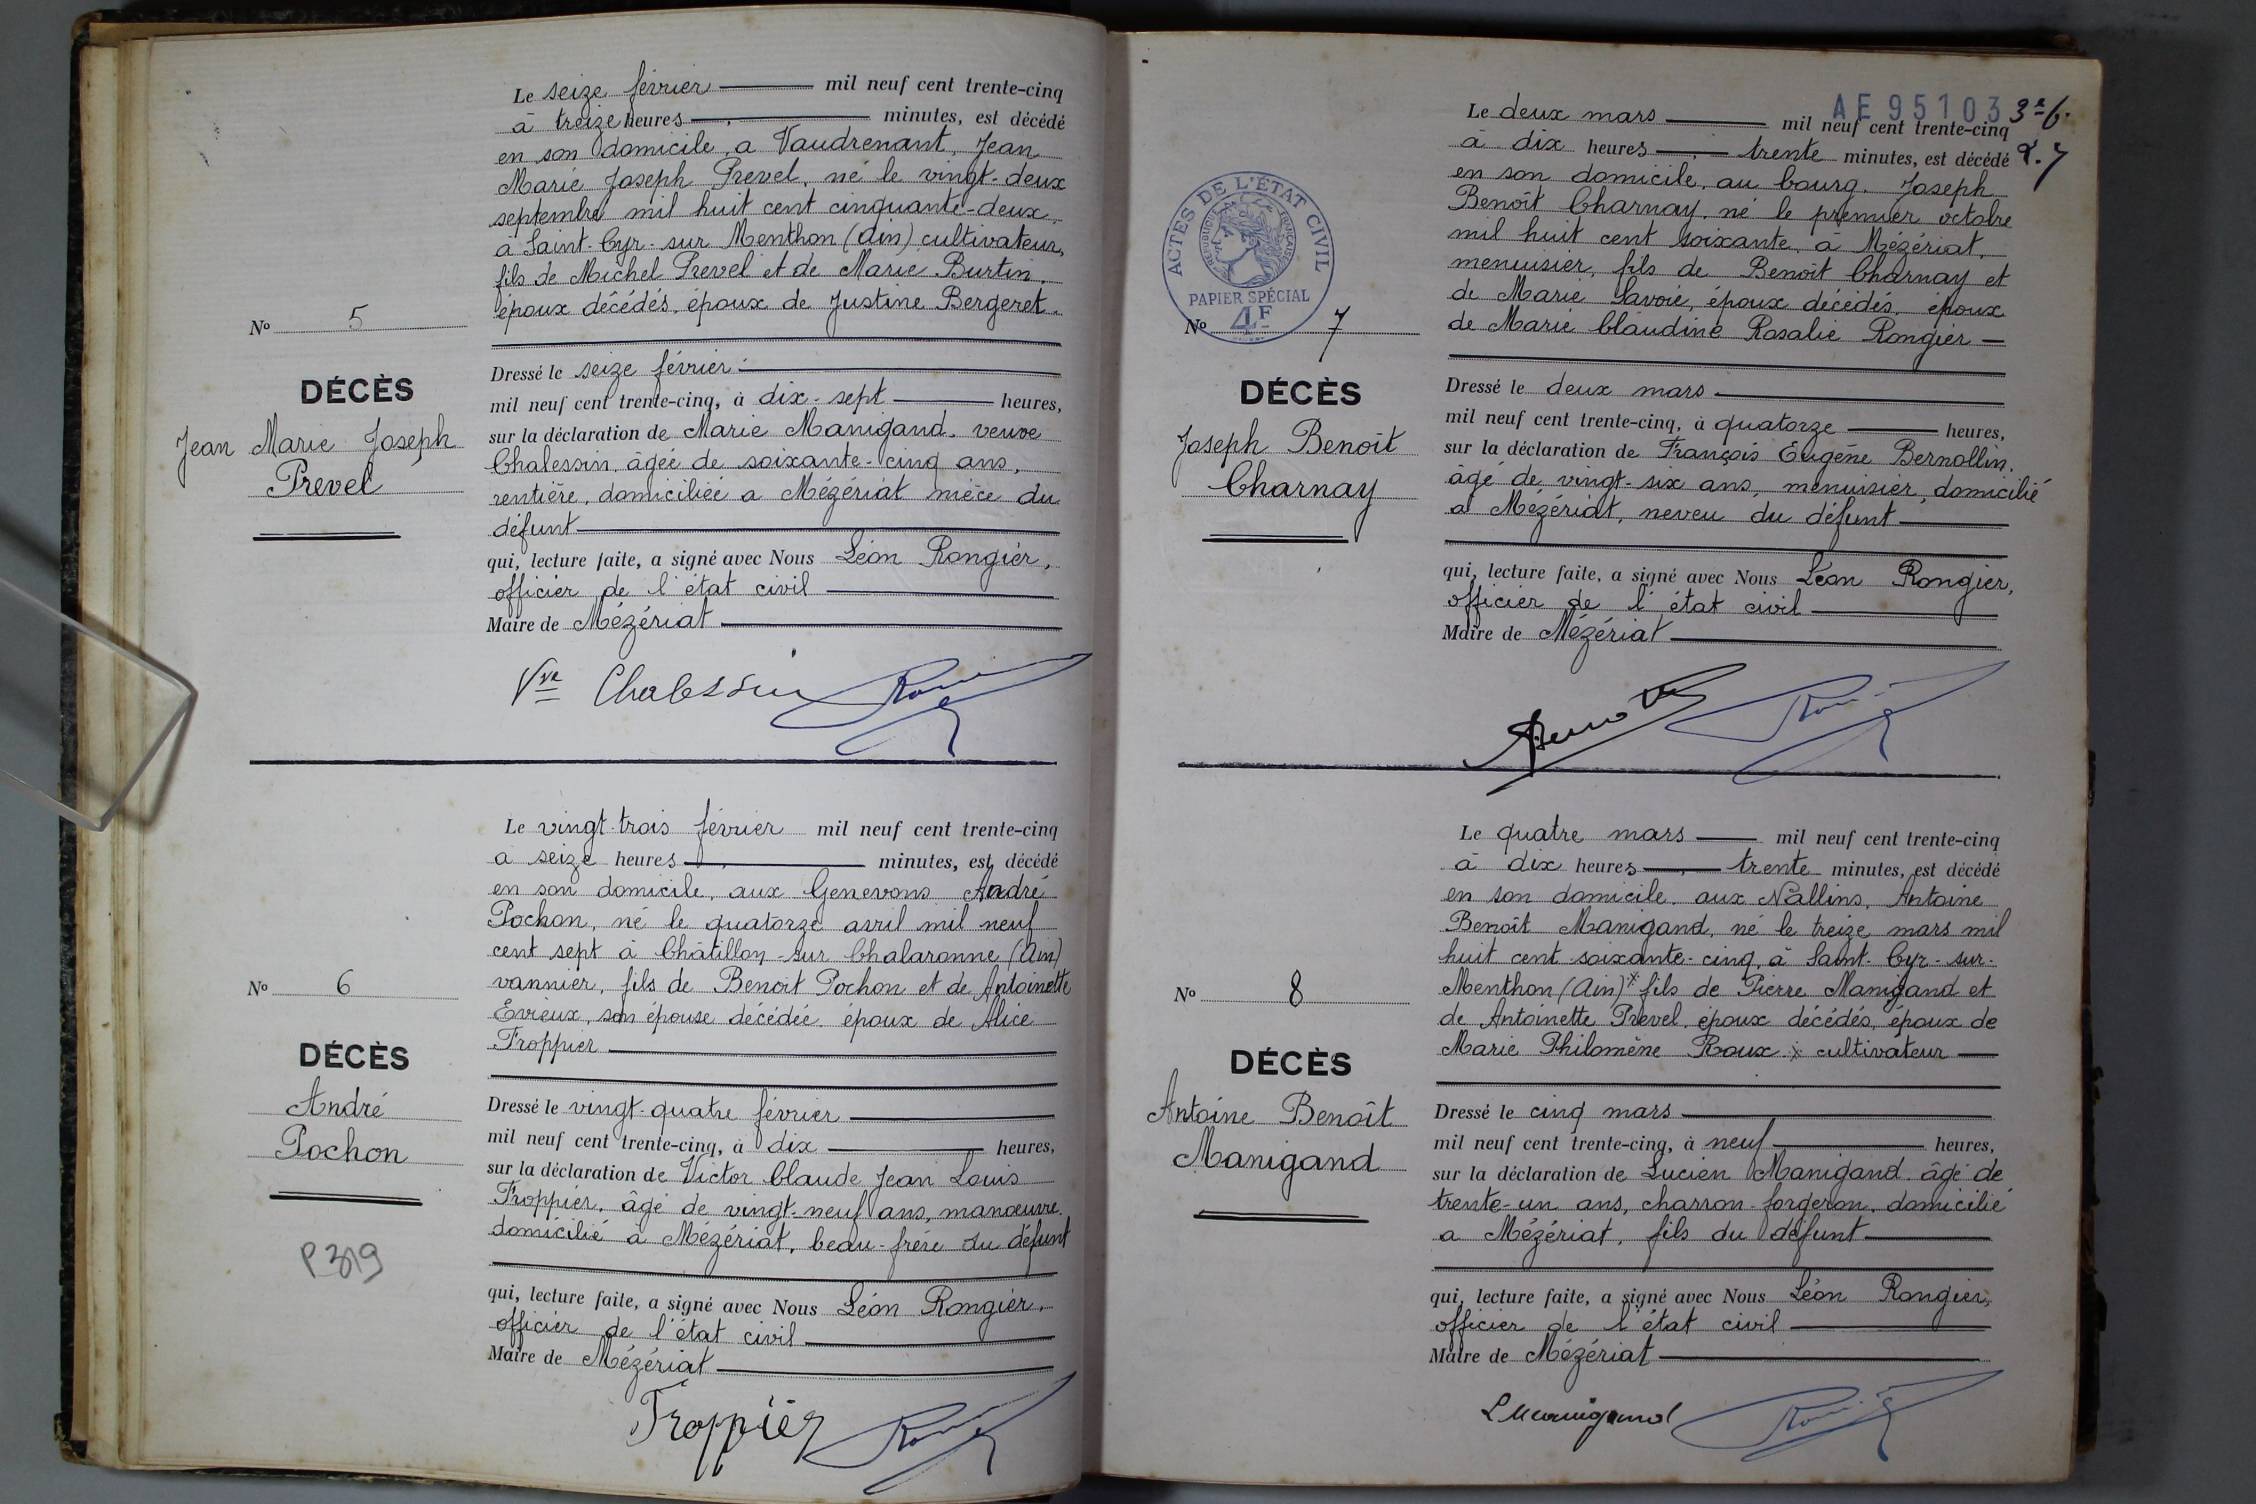 Le seize février mil neuf cent trente-cinq
à treize heures minutes, est décédé
en son domicile, a Vaudrenant, Jean
Marie Joseph Prevel, né le vingt-deux
septembre mil huit cent cinquante-deux
à Saint-Cyr-sur Menthon (Ain) cultivateur,
fils de Michel Prevel et de Marie Burtin,
époux décédés, époux de Justine Bergeret.
No 5
DÉCÈS
Jean Marie Joseph
Prevel
Dressé le seize février
mil neuf cent trente-cinq, à dix-sept heures,
sur la déclaration de Marie Manigand, veuve
Chalessin, âgée de soixante-cinq ans,
rentière, domiciliée a Mézériat nièce du
défunt
qui, lecture faite, a signé avec Nous Léon Rongier,
officier de l'état civil
Maire de Mézériat
Vve Chalessin
Le vingt-trois février mil neuf cent trente-cinq
à seize heures minutes, est décédé
en son domicile, aux Genevons André
Pochon, né le quatorze avril mil neuf
cent sept à Châtillon-sur Chalaronne (Ain)
vannier, fils de Benoît Pochon et de Antoinette
Evieux, son épouse décédée, époux de Alice
Troppier
No 6
DÉCÈS
André
Pochon
P319
Dressé le vingt-quatre février
mil neuf cent trente-cinq, à dix heures,
sur la déclaration de Victor Claude Jean Louis
Troppier, âgé de vingt-neuf ans, manœuvre
domicilié a Mézériat, beau-frère du défunt
qui, lecture faite, a signé avec Nous Léon Rongier,
officier de l'état civil
Maire de Mézériat
Troppier
AE 95103
Le deux mars mil neuf cent trente-cinq
à dix heures trente minutes, est décédé
en son domicile, au bourg, Joseph
Benoît Charnay, né le premier octobre
mil huit cent soixante, à Mézériat,
menuisier, fils de Benoît Charnay et
de Marie Savoie, époux décédés, époux
de Marie Claudine Rosalie Rongier
ACTES DE L'ÉTAT CIVIL
RÉPUBLIQUE FRANÇAISE
PAPIER SPÉCIAL
4F
No 7
DÉCÈS
Joseph Benoît
Charnay
Dressé le deux mars
mil neuf cent trente-cinq, à quatorze heures,
sur la déclaration de François Eugène Bernollin,
âgé de vingt-six ans, menuisier, domicilié
a Mézériat, neveu du défunt
qui, lecture faite, a signé avec Nous Léon Rongier,
officier de l'état civil
Maire de Mézériat
Le quatre mars mil neuf cent trente-cinq
à dix heures trente minutes, est décédé
en son domicile, aux Nallins, Antoine
Benoît Manigand, né le treize mars mil
huit cent soixante-cinq, à Saint-Cyr-sur-
Menthon (Ain) x fils de Pierre Manigand et
de Antoinette Prevel, époux décédés, époux de
Marie Philomène Roux x cultivateur
No 8
DÉCÈS
Antoine Benoît
Manigand
Dressé le cinq mars
mil neuf cent trente-cinq, à neuf heures,
sur la déclaration de Lucien Manigand, âgé de
trente-un ans, charron-forgeron, domicilié
a Mézériat, fils du défunt
qui, lecture faite, a signé avec Nous Léon Rongier,
officier de l'état civil
Maire de Mézériat
L Manigand